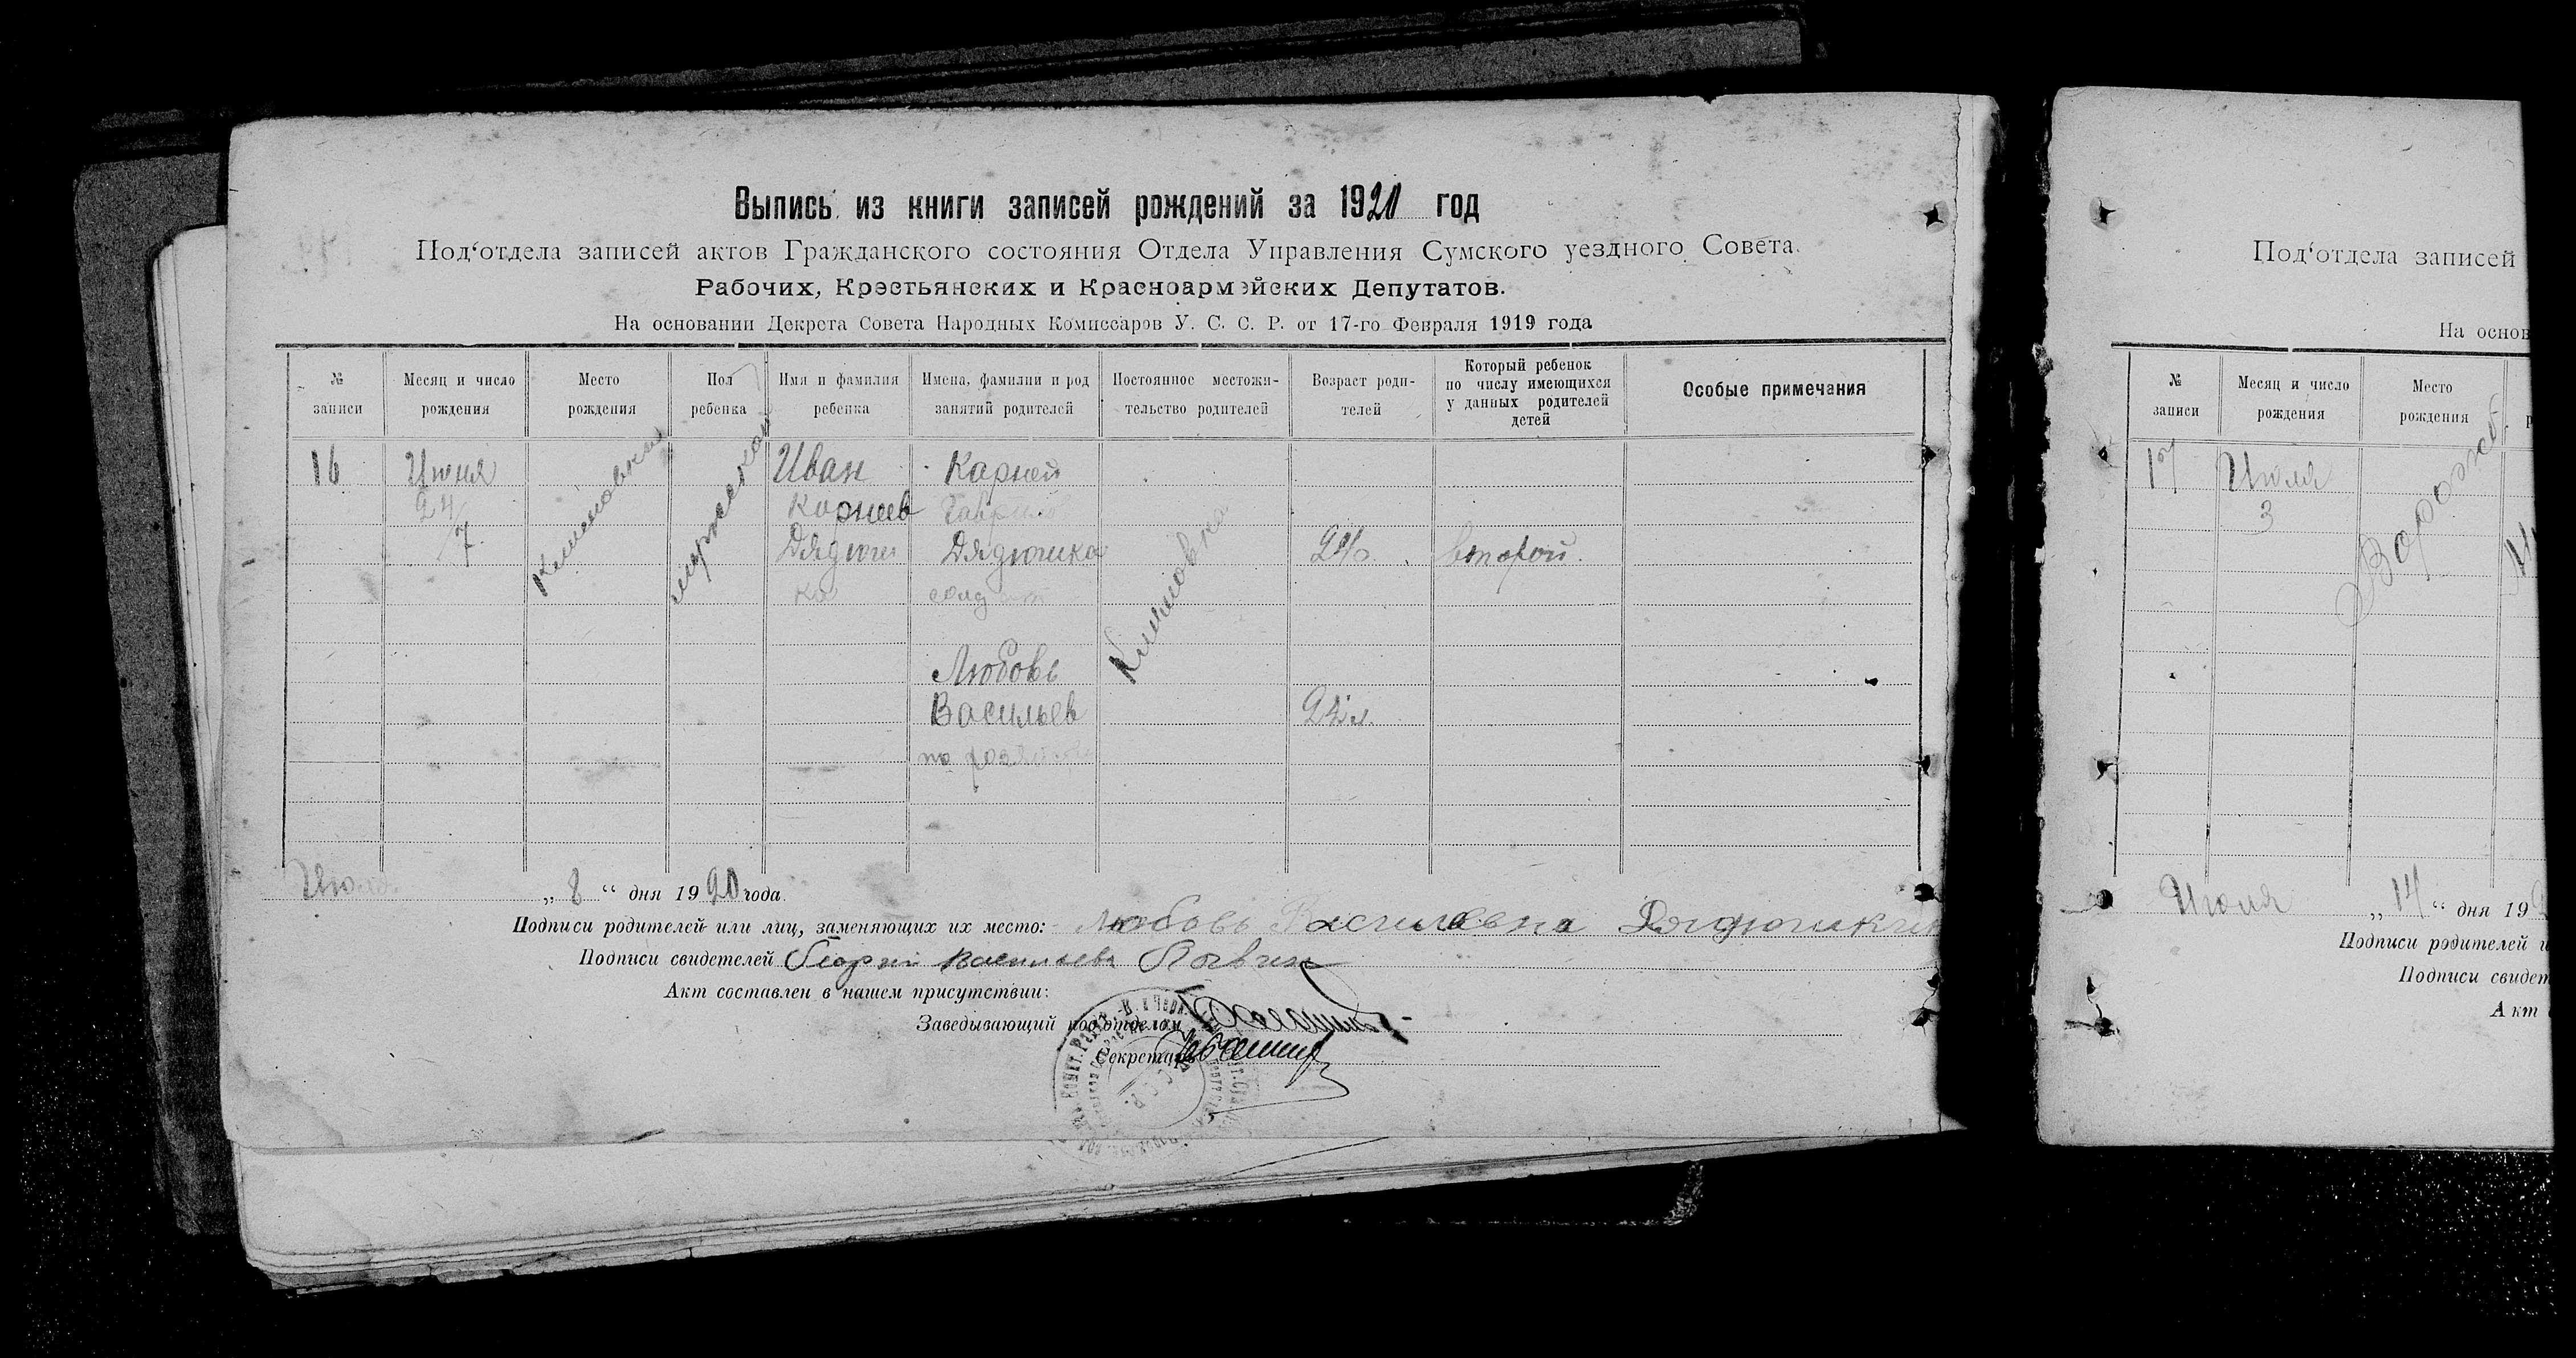 Выпись из книги записей рождений за 1920 год
Под‘отдела записей актов Гражданского состояния Отдела Управления Сумского уездного Совета
Рабочих, Крестьянских и Красноармейских Депутатов.
На основании Декрета Совета Народных Комиссаров У. С. С. Р. от 17-го Февраля 1919 года
№ записи
Месяц и число рождения
Место рождения
Пол ребенка
Имя и фамилия ребенка
Имена, фамилии и род занятий родителей
Постоянное местожительство родителей
Возраст родителей
Который ребенок по числу имеющихся у данных родителей детей
Особые примечания
16
Июня
24/7
Климовка
мужской
Иван
Корнеев
Дядюш
ка
Карней
Дядюшка
Любовь
Васильев
Климовка
второй.
„ 8 “ дня 1920 года.
Подписи родителей или лиц, заменяющих их место: Любовь Василевна
Подписи свидетелей Георгий Васильев
Акт составлен в нашем присутствии:
Заведывающий под‘отделом
Секретарь
Под‘отдела записей
На основ
№ записи
Месяц и число рождения
Место рождения
17
Июля
3
Ворожб.
Июля „ 14 “ дня 19
Подписи родителей и
Подписи свидет
Акт